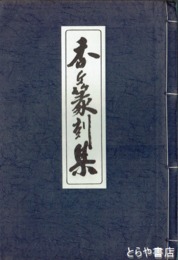 香石篆刻集
とらや書店